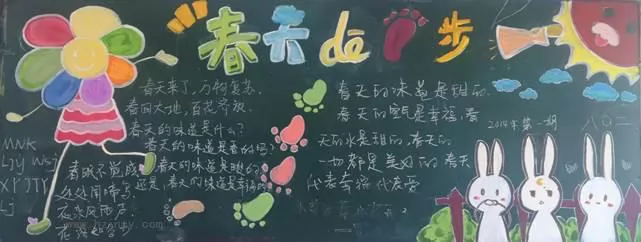 春天dē脚步
春天来了,万物复苏,
春回大地,百花齐放.
春天的味道是什么?
春天的味道是香的吗?
春天的味道是甜的
春天的味道是幸福
春眠不觉晓
处处闻啼鸟.
夜来风雨声,
花落知多少
MNK
LJY WSJ
XP JTY
LJ
春天的味道是甜的.
春天的
是幸福.春
天的水是甜的.春天的
一切都是美好的.春天
代表幸福代表爱
2014年第一期
八〇二